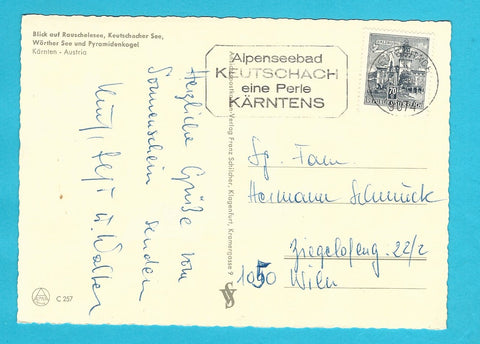 Blick auf Rauschelesee, Keutschacher See,
Wörther See und Pyramidenkogel
Kärnten - Austria
Alpenseebad
KEUTSCHACH
eine Perle
KÄRNTENS
70
Herzliche Grüße vom
Sonnenschein senden
u. Walter
Verlag Franz Schilcher, Klagenfurt, Kramergasse 9
Fam.
Hermann Schmuck
Ziegelofeng. 22/2
1050 Wien
C 257